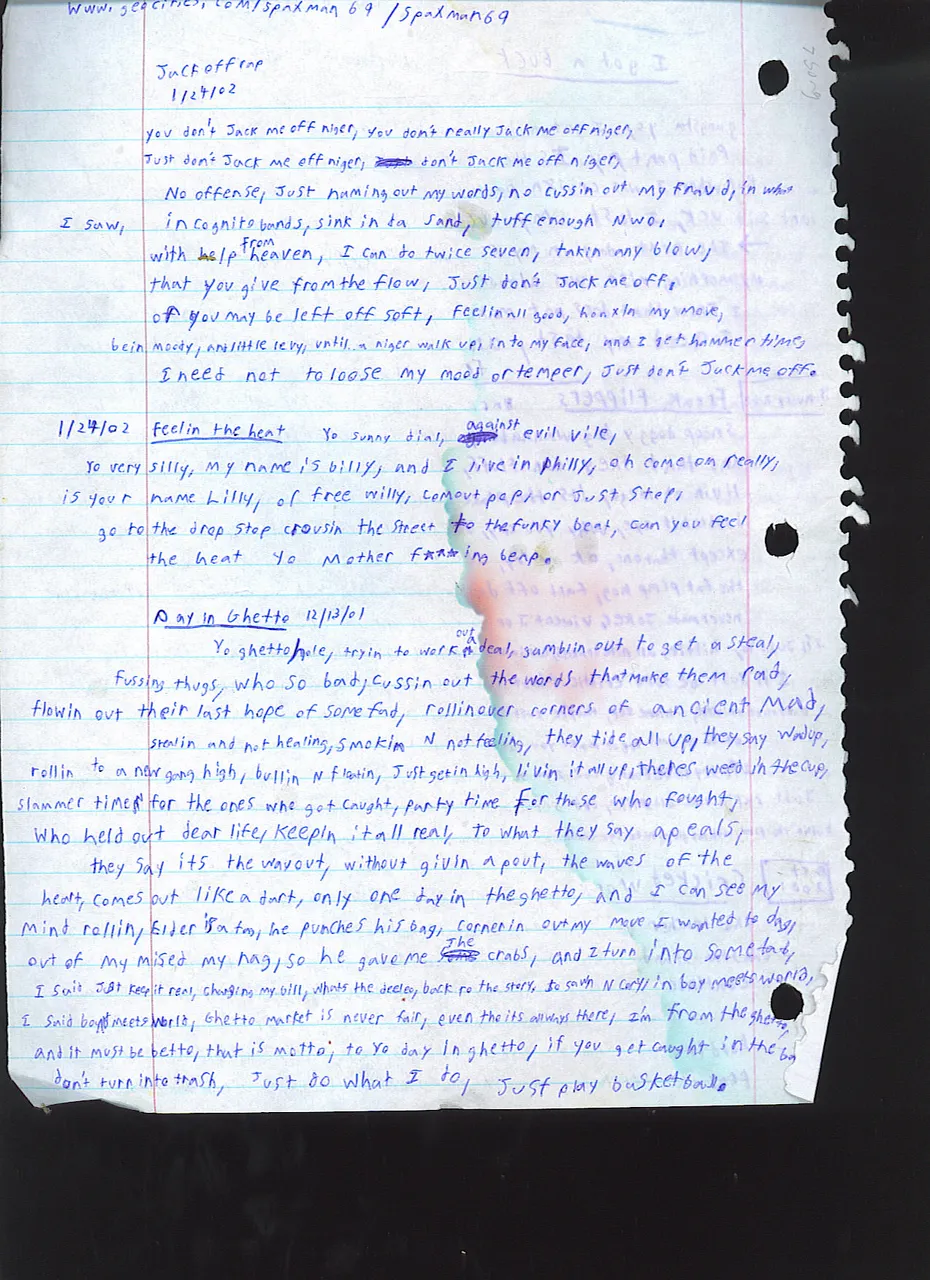 www.geocities.com/spaxman69/spaxman69
Jack off rap
1/24/02
you don't Jack me off niger, you don't really Jack me off niger,
Just don't Jack me off niger, don't Jack me off niger,
No offense, Just huming out my words, no cussin out my fraud, in what
I saw, in cognito bands, sink in da sand, tuff enough NWO,
with help from heaven, I can do twice seven, takin any blow,
that you give from the flow, Just don't Jack me off,
or you may be left off soft, feelin all good, hoaxin my move,
bein moody, and little levy, until a niger walk up, into my face, and I get hammer time,
I need not to loose my mood or temper, Just don't Jack me off.
1/24/02 feelin the heat Yo sunny dial, against evil vile,
Yo very silly, my name is billy, and I live in philly, oh come on really,
is your name Lilly, or free willy, comout pop, or Just stop,
go to the drop stop crousin the street to the funky beat, can you feel
the heat Yo Mother f***ing beap.
Day in Ghetto 12/13/01
Yo ghetto hole, tryin to work out a deal, gamblin out to get a steal,
Fussing thugs, who so bad, cussin out the words that make them rad,
flowin out their last hope of some fad, rollin over corners of ancient Mad,
stealin and not healing, smokin N not feeling, they tide all up, they say wadup,
rollin to a new gang high, bullin N floatin, Just getin high, livin it all up, theres weed in the cup,
slammer times for the ones who got caught, party time for those who fought,
who held out dear life, keepin it all real, to what they say apeals,
they say its the wayout, without givin a pout, the waves of the
heart, comes out like a dart, only one day in the ghetto, and I can see my
mind rollin, Elder is a fag, he punches his bag, cornerin out my move I wanted to dag,
out of my mised my nag, so he gave me the crabs, and I turn into some tab,
I said Just keep it real, charging my bill, whats the deeleo, back to the story, to sawn N Cory, in boy meets world,
I said boy meets world, Ghetto market is never fair, even tho its always there, I'm from the ghetto,
and it must be betto, that is motto, to Yo day in ghetto, if you get caught in the
don't turn into trash, Just do what I do, Just play basketball.